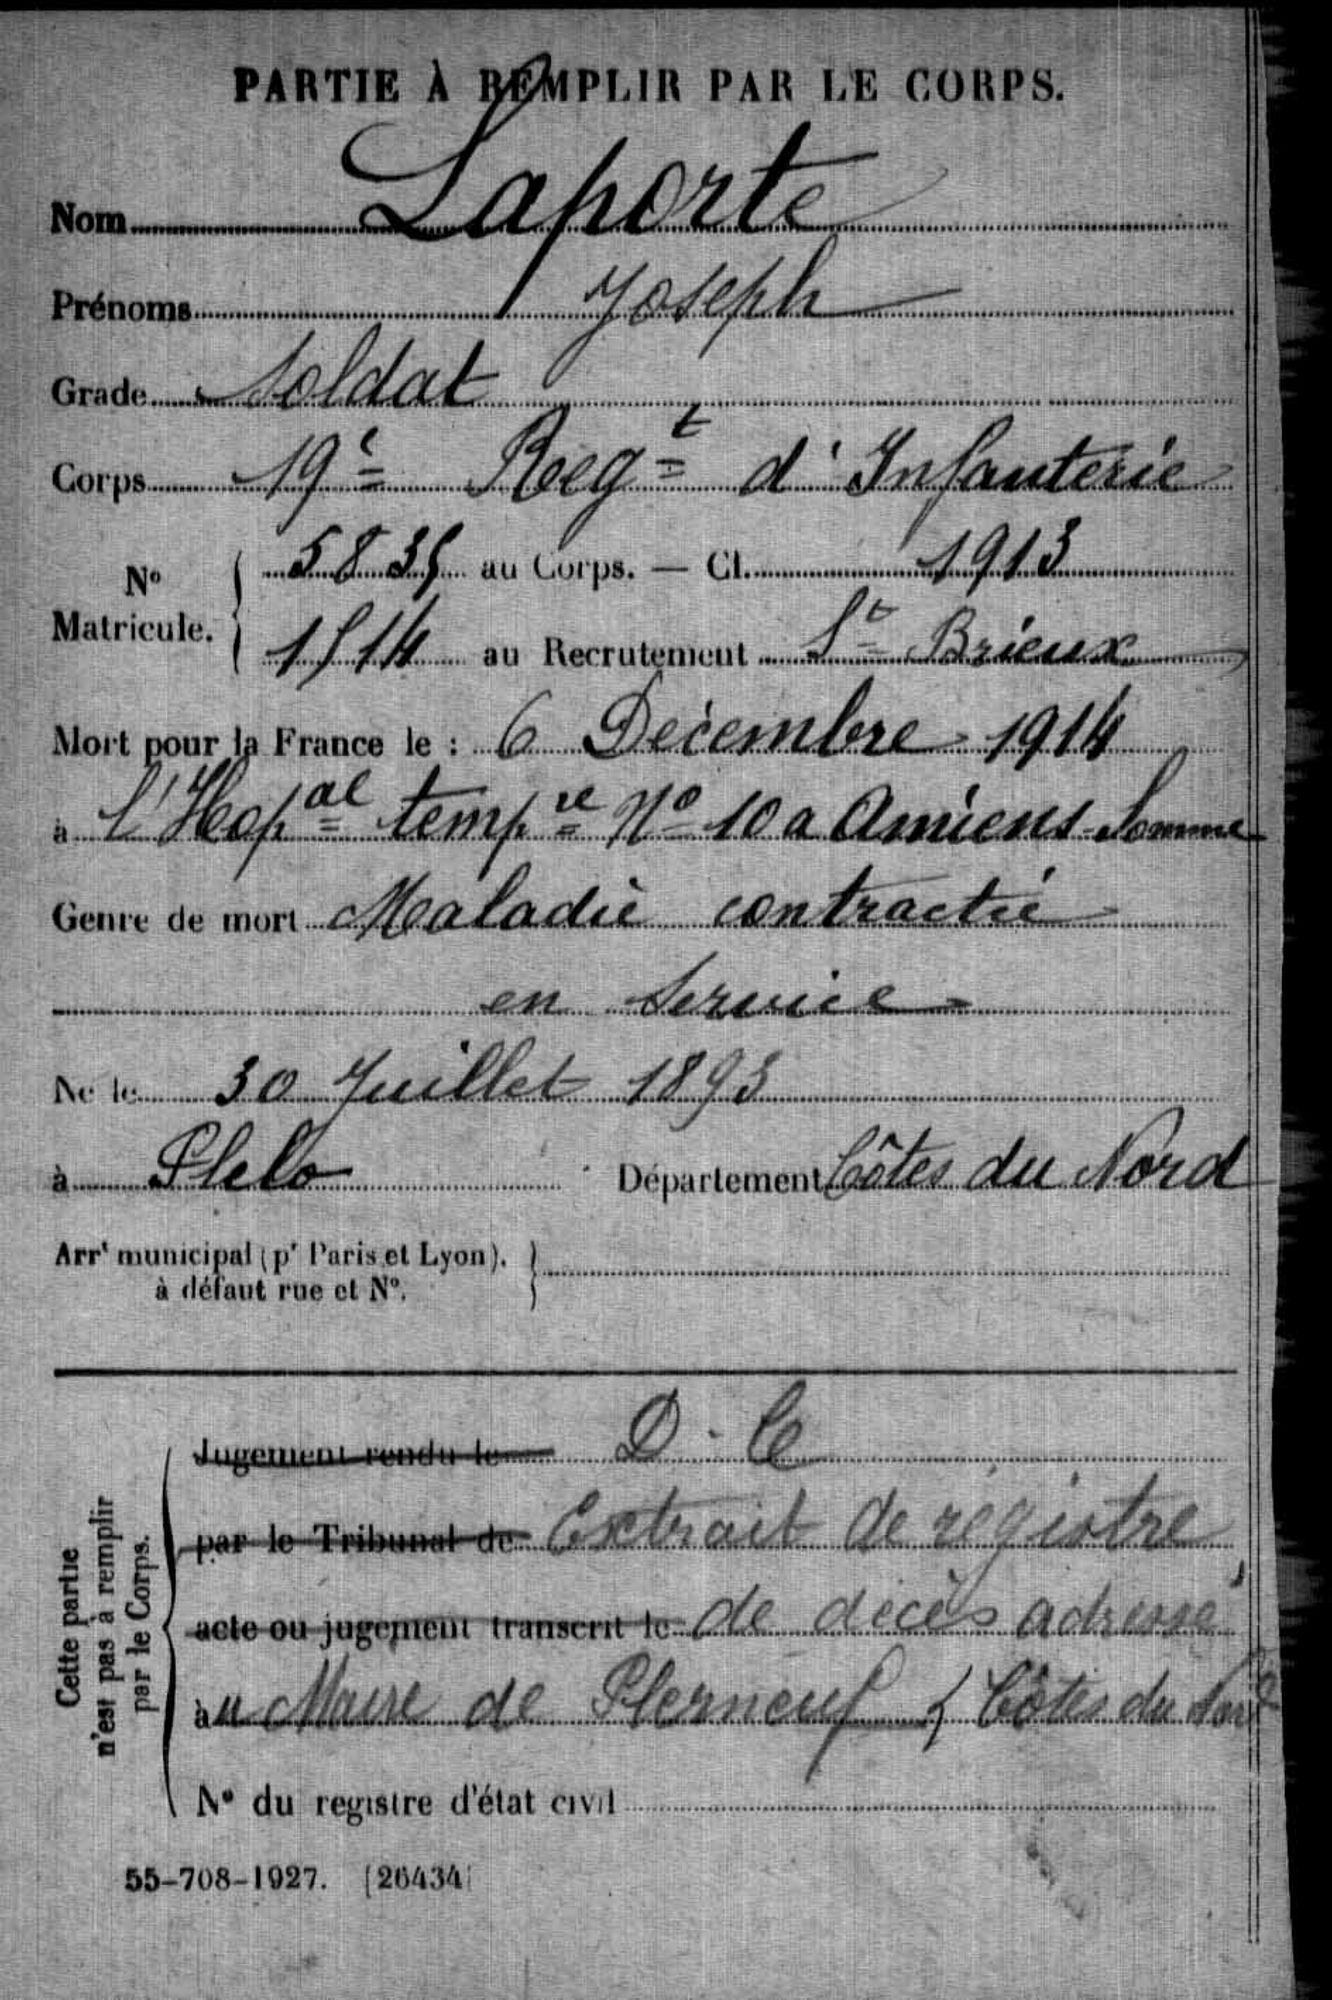 PARTIE À REMPLIR PAR LE CORPS.
Nom Laporte
Prénoms Joseph
Grade Soldat
Corps 19e Regt d'Infanterie
No Matricule. { 5835 au Corps. — Cl. 1913
1514 au Recrutement St Brieux
Mort pour la France le : 6 Décembre 1914
à l'Hopal tempre No 10 a Amiens-Somme
Genre de mort Maladie contractée
en Service
Né le 30 Juillet 1893
à Plelo Département Côtes du Nord
Arrt municipal (pr Paris et Lyon), }
à défaut rue et No.
Cette partie
n'est pas à remplir
par le Corps.
Jugement rendu le D. C
par le Tribunal de Extrait de régistre
acte ou jugement transcrit le de décès adressé
au Maire de Plerneuf (Côtes du Nord
No du registre d'état civil
55-708-1927. [26434]